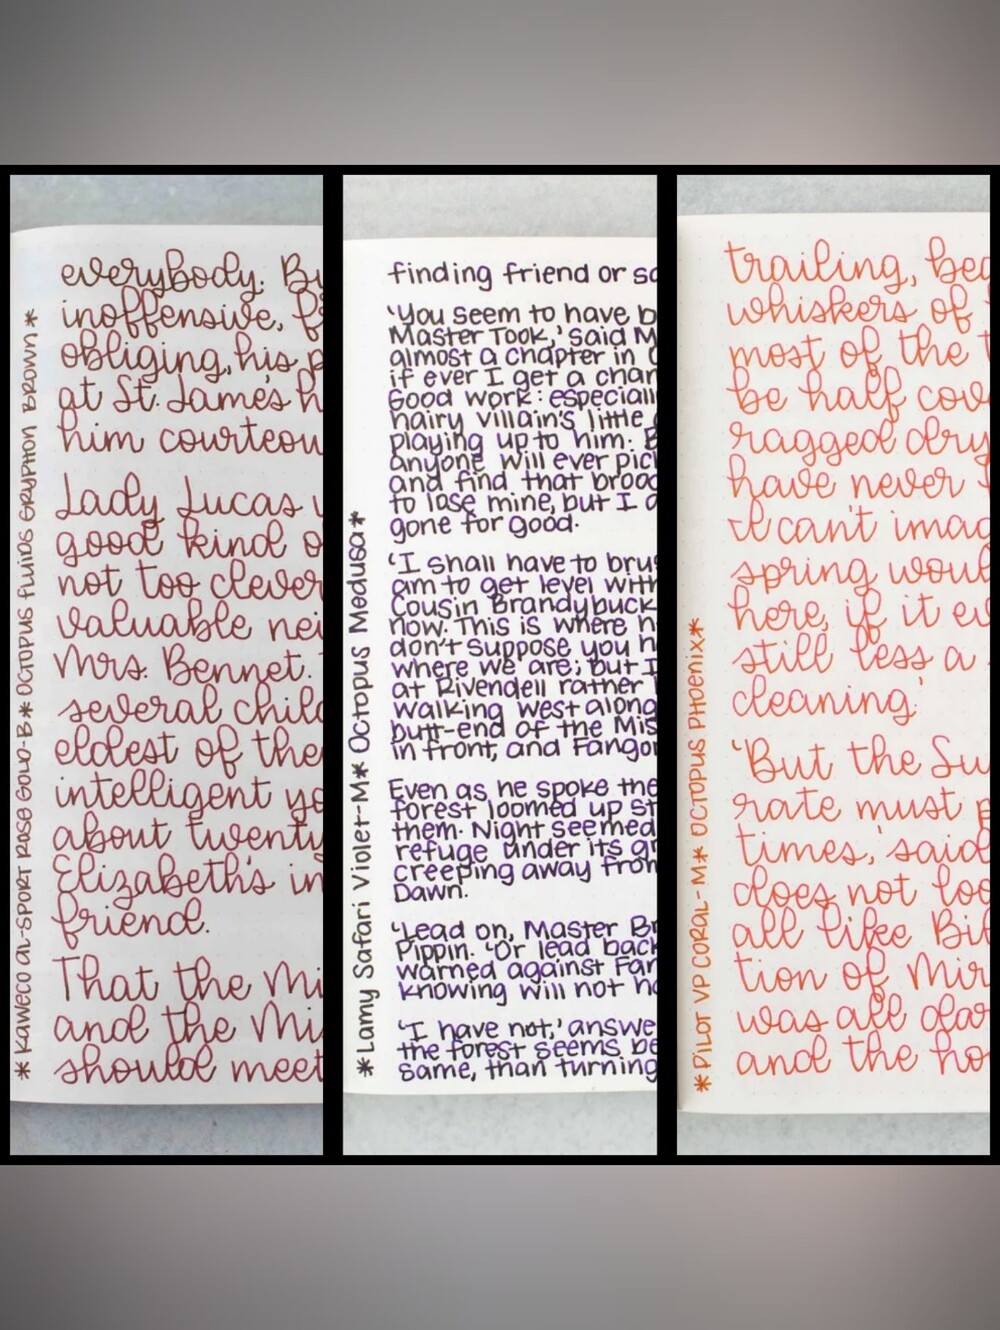 *Kaweco Al-Sport Rose Gold-B* Octopus Fluids Gryphon Brown*
everybody. By
inoffensive, fr
obliging, his p
at St. James's h
him courteou
Lady Lucas w
good kind o
not too clever
valuable nei
Mrs. Bennet.
several child
eldest of the
intelligent yo
about twenty
Elizabeth's in
friend.
That the Mi
and the Mi
should meet
*Lamy Safari Violet-M* Octopus Medusa*
finding friend or so
'You seem to have b
Master Took,' said M
almost a chapter in
if ever I get a chan
Good work: especiall
hairy villain's little
playing up to him. B
anyone will ever pic
and find that brooc
to lose mine, but I a
gone for good.
'I shall have to bru
am to get level with
Cousin Brandybuck
now. This is where h
don't suppose you h
where we are; but I
at Rivendell rather
walking west along
butt-end of the Mis
in front, and Fangor
Even as he spoke the
forest loomed up st
them. Night seemed
refuge under its gr
creeping away from
Dawn.
'Lead on, Master Br
Pippin. 'Or lead back
warned against Fan
knowing will not ha
'I have not,' answe
the forest seems be
same, than turning
*Pilot VP Coral-M* Octopus Phoenix*
trailing, bea
whiskers of
most of the t
be half cov
ragged dry
have never
I can't imag
spring woul
here, if it ev
still less a
cleaning.'
'But the Su
rate must p
times,' said
does not loo
all like Bil
tion of Mir
was all dar
and the ho